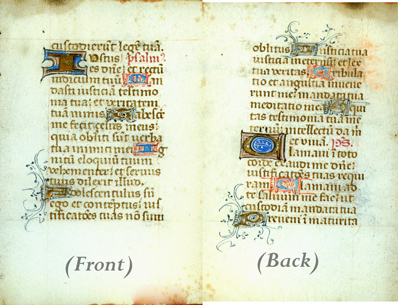 custodierunt legē tuā.
Iustus psalm⁹
es dñe: et rectū
iudicium tuū. Man
dasti iusticiā testimo
nia tua: et veritatem
tuā nimis. Tabesce
re me fecit zelus meus:
quia obliti sūt verba
tua inimici mei. Ig
nitū eloquiū tuum
vehementer: et servus
tuus dilexit illud.
Adolescentulus sū
ego et contēptus: ius
tificatōes tuas nō sum
(Front)
oblitus. Iusticia tua
iusticia ineternū: et lex
tua veritas. Tribula
tio et angustia invene
runt me: mandata tua
meditatio mea. Equi
tas testimonia tua ine
ternū: intellectū da m
et vivā. ps
Clamavi ī toto
corde exaudi me dñe:
iustificatōes tuas requi
ram. Clamavi ad
te salvū me fac: ut
custodiam mandata tua
Preveni ī maturita
(Back)